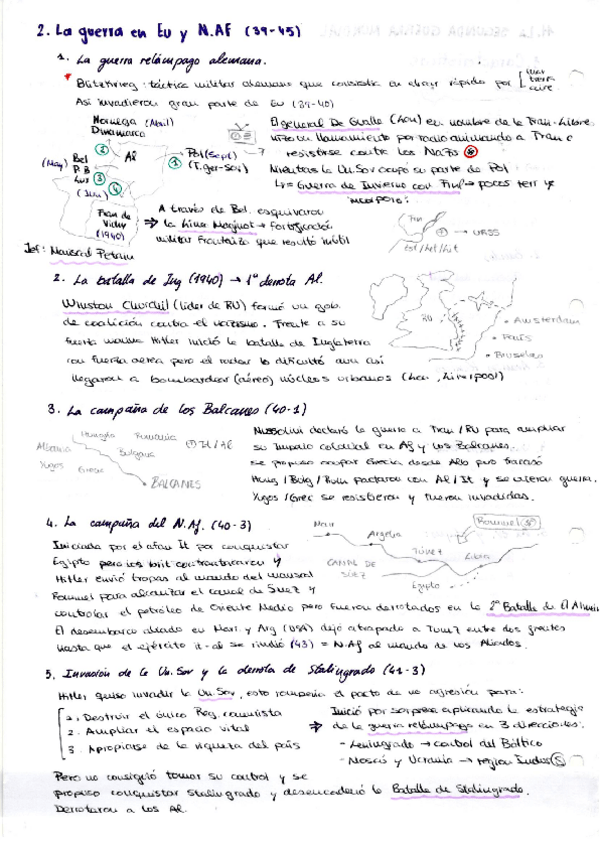 2. La guerra en Eu y N.AF (39-45)
1. La guerra relámpago alemana.
Blitzkrieg: táctica militar alemana que consistía en atacar rápido por
Así invadieron gran parte de Eu (39-40)
Noruega (Abril)
Dinamarca
(May) Bel
P.B
Lux
Al
Pol (Sept)
(T. ger-Sov)
1
2
3
4
(Jun)
Fran de
Vichy
(1940)
Jef: Mariscal Petain
El general De Gaulle (Lon) en nombre de la Fran. Libre
hizo un llamamiento por radio animando a Fran a
resistirse contra los Nazis
Mientras la Un.Sov ocupó su parte de Pol
Guerra de Invierno con Finl → pocos terr y
incorporó:
Fin
→ URSS
Est/Let/Lit
A través de Bel. esquivaron
⇒ la línea Maginot → fortificación
militar francesa que resultó inútil
2. La batalla de Ing (1940) → 1ª derrota Al.
Winston Churchil (líder de RU) formó un gob.
de coalición contra el nazismo. Frente a su
fuerza marina Hitler inició la batalla de Inglaterra
con fuerza aérea pero el radar lo dificultó aun así
llegaron a bombardear (aéreo) núcleos urbanos (Lon, Liverpool)
RU
Amsterdam
París
Bruselas
3. La campaña de los Balcanes (40-1)
Hungría
Rumanía
Albania
Bulgaria
Yugos
Grecia
It/Al
BALCANES
Mussolini declaró la guerra a Fran/RU para ampliar
su Imperio colonial en Af y los Balcanes.
Se propuso ocupar Grecia desde Alb pero fracasó
Hung/Bulg/Rum pactaron con Al/It y se unieron guerra.
Yugos/Grec se resistieron y fueron invadidas.
4. La campaña del N.Af. (40-3)
Iniciada por el afán It por conquistar
Egipto pero los brit contraatacaron y
Hitler envió tropas al mando del mariscal
Rommel para alcanzar el canal de Suez y
controlar el petróleo de Oriente Medio pero fueron derrotados en la 2ª Batalla de El Alamein
El desembarco aliado en Marr. y Arg (USA) dejó atrapado a Tunez entre dos frentes
hasta que el ejército it-al se rindió (43) = N.Af al mando de los Aliados.
Marr
Argelia
Túnez
Libia
Egipto
CANAL DE
SUEZ
Rommel
5. Invasión de la Un.Sov y la derrota de Stalingrado (41-3)
Hitler quiso invadir la Un.Sov, esto rompería el pacto de no agresión para:
1. Destruir el único Reg. comunista
2. Ampliar el espacio vital
3. Apropiarse de la riqueza del país
Inició por sorpresa aplicando la estrategia
⇒ de la guerra relámpago en 3 direcciones:
- Leningrado → control del Báltico
- Moscú y Ucrania → región Indus
Pero no consiguió tomar su control y se
propuso conquistar Stalingrado y desencadenó la Batalla de Stalingrado.
Derrotaron a los Al.